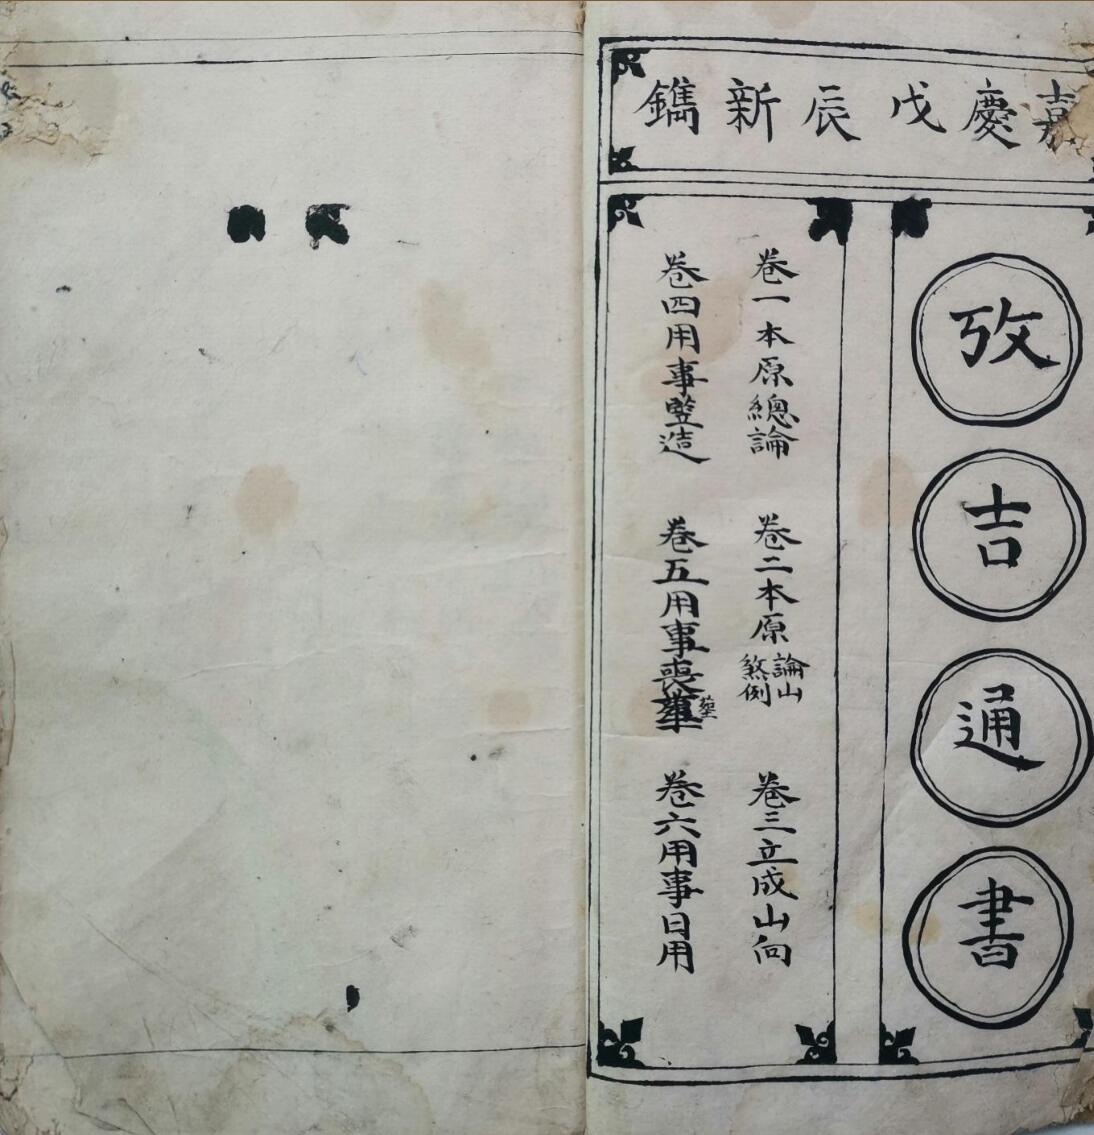 嘉慶戊辰新鐫
攷吉通書
卷一本原總論 卷二本原論山煞例 卷三立成山向
卷四用事豎造 卷五用事喪葬 卷六用事日用